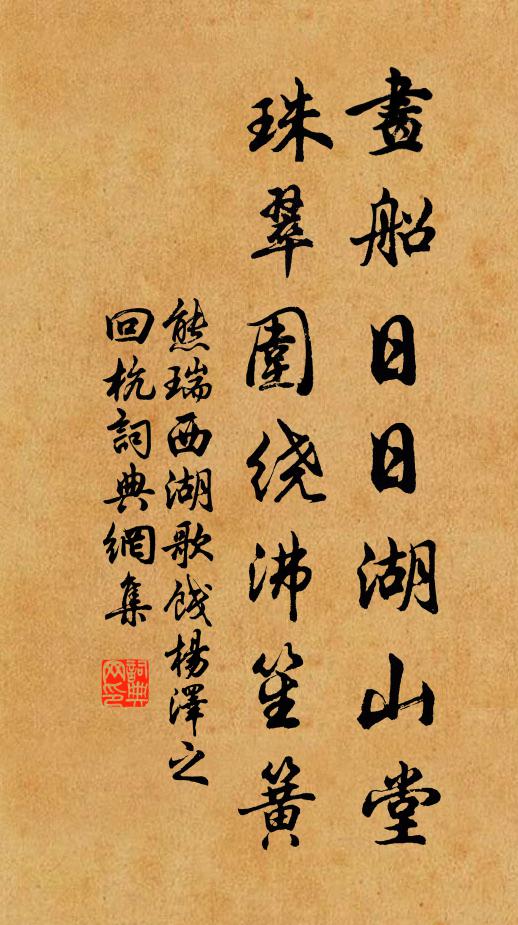 畫船日日湖山堂
珠翠圍绕沸笙簧
熊瑞西湖歌饯楊澤之
回杭詞典網集
詞典
网印